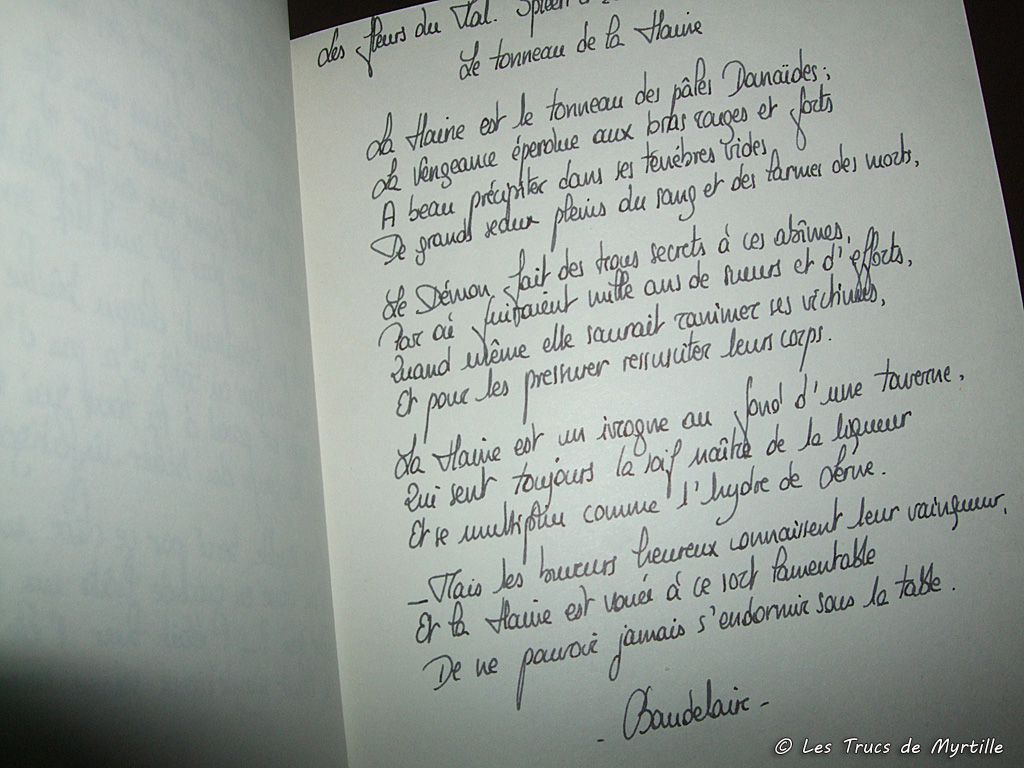 Les fleurs du Mal. Spleen
Le tonneau de la Haine
La Haine est le tonneau des pâles Danaïdes;
La Vengeance éperdue aux bras rouges et forts
A beau précipiter dans ses ténèbres vides
De grands seaux pleins du sang et des larmes des morts,
Le Démon fait des trous secrets à ces abîmes,
Par où fuiraient mille ans de sueurs et d'efforts,
Quand même elle saurait ranimer ses victimes,
Et pour les pressurer ressusciter leurs corps.
La Haine est un ivrogne au fond d'une taverne,
Qui sent toujours la soif naître de la liqueur
Et se multiplier comme l'hydre de Lerne.
_Mais les buveurs heureux connaissent leur vainqueur,
Et la Haine est vouée à ce sort lamentable
De ne pouvoir jamais s'endormir sous la table.
- Baudelaire -
© Les Trucs de Myrtille